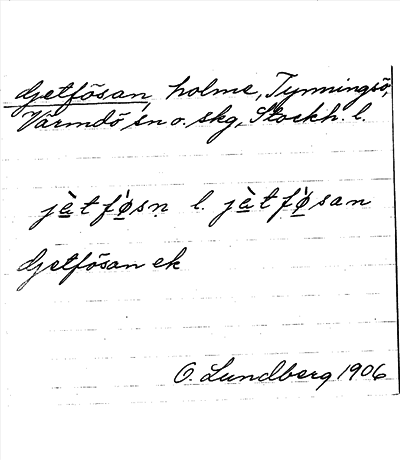 Getfösan, holme, Tynningsö,
Värmdö sn o. skg, Stockh. l.
jὲtfø̀sṇ l. jὲtfø̀san
Getfösan ek
O. Lundberg 1906